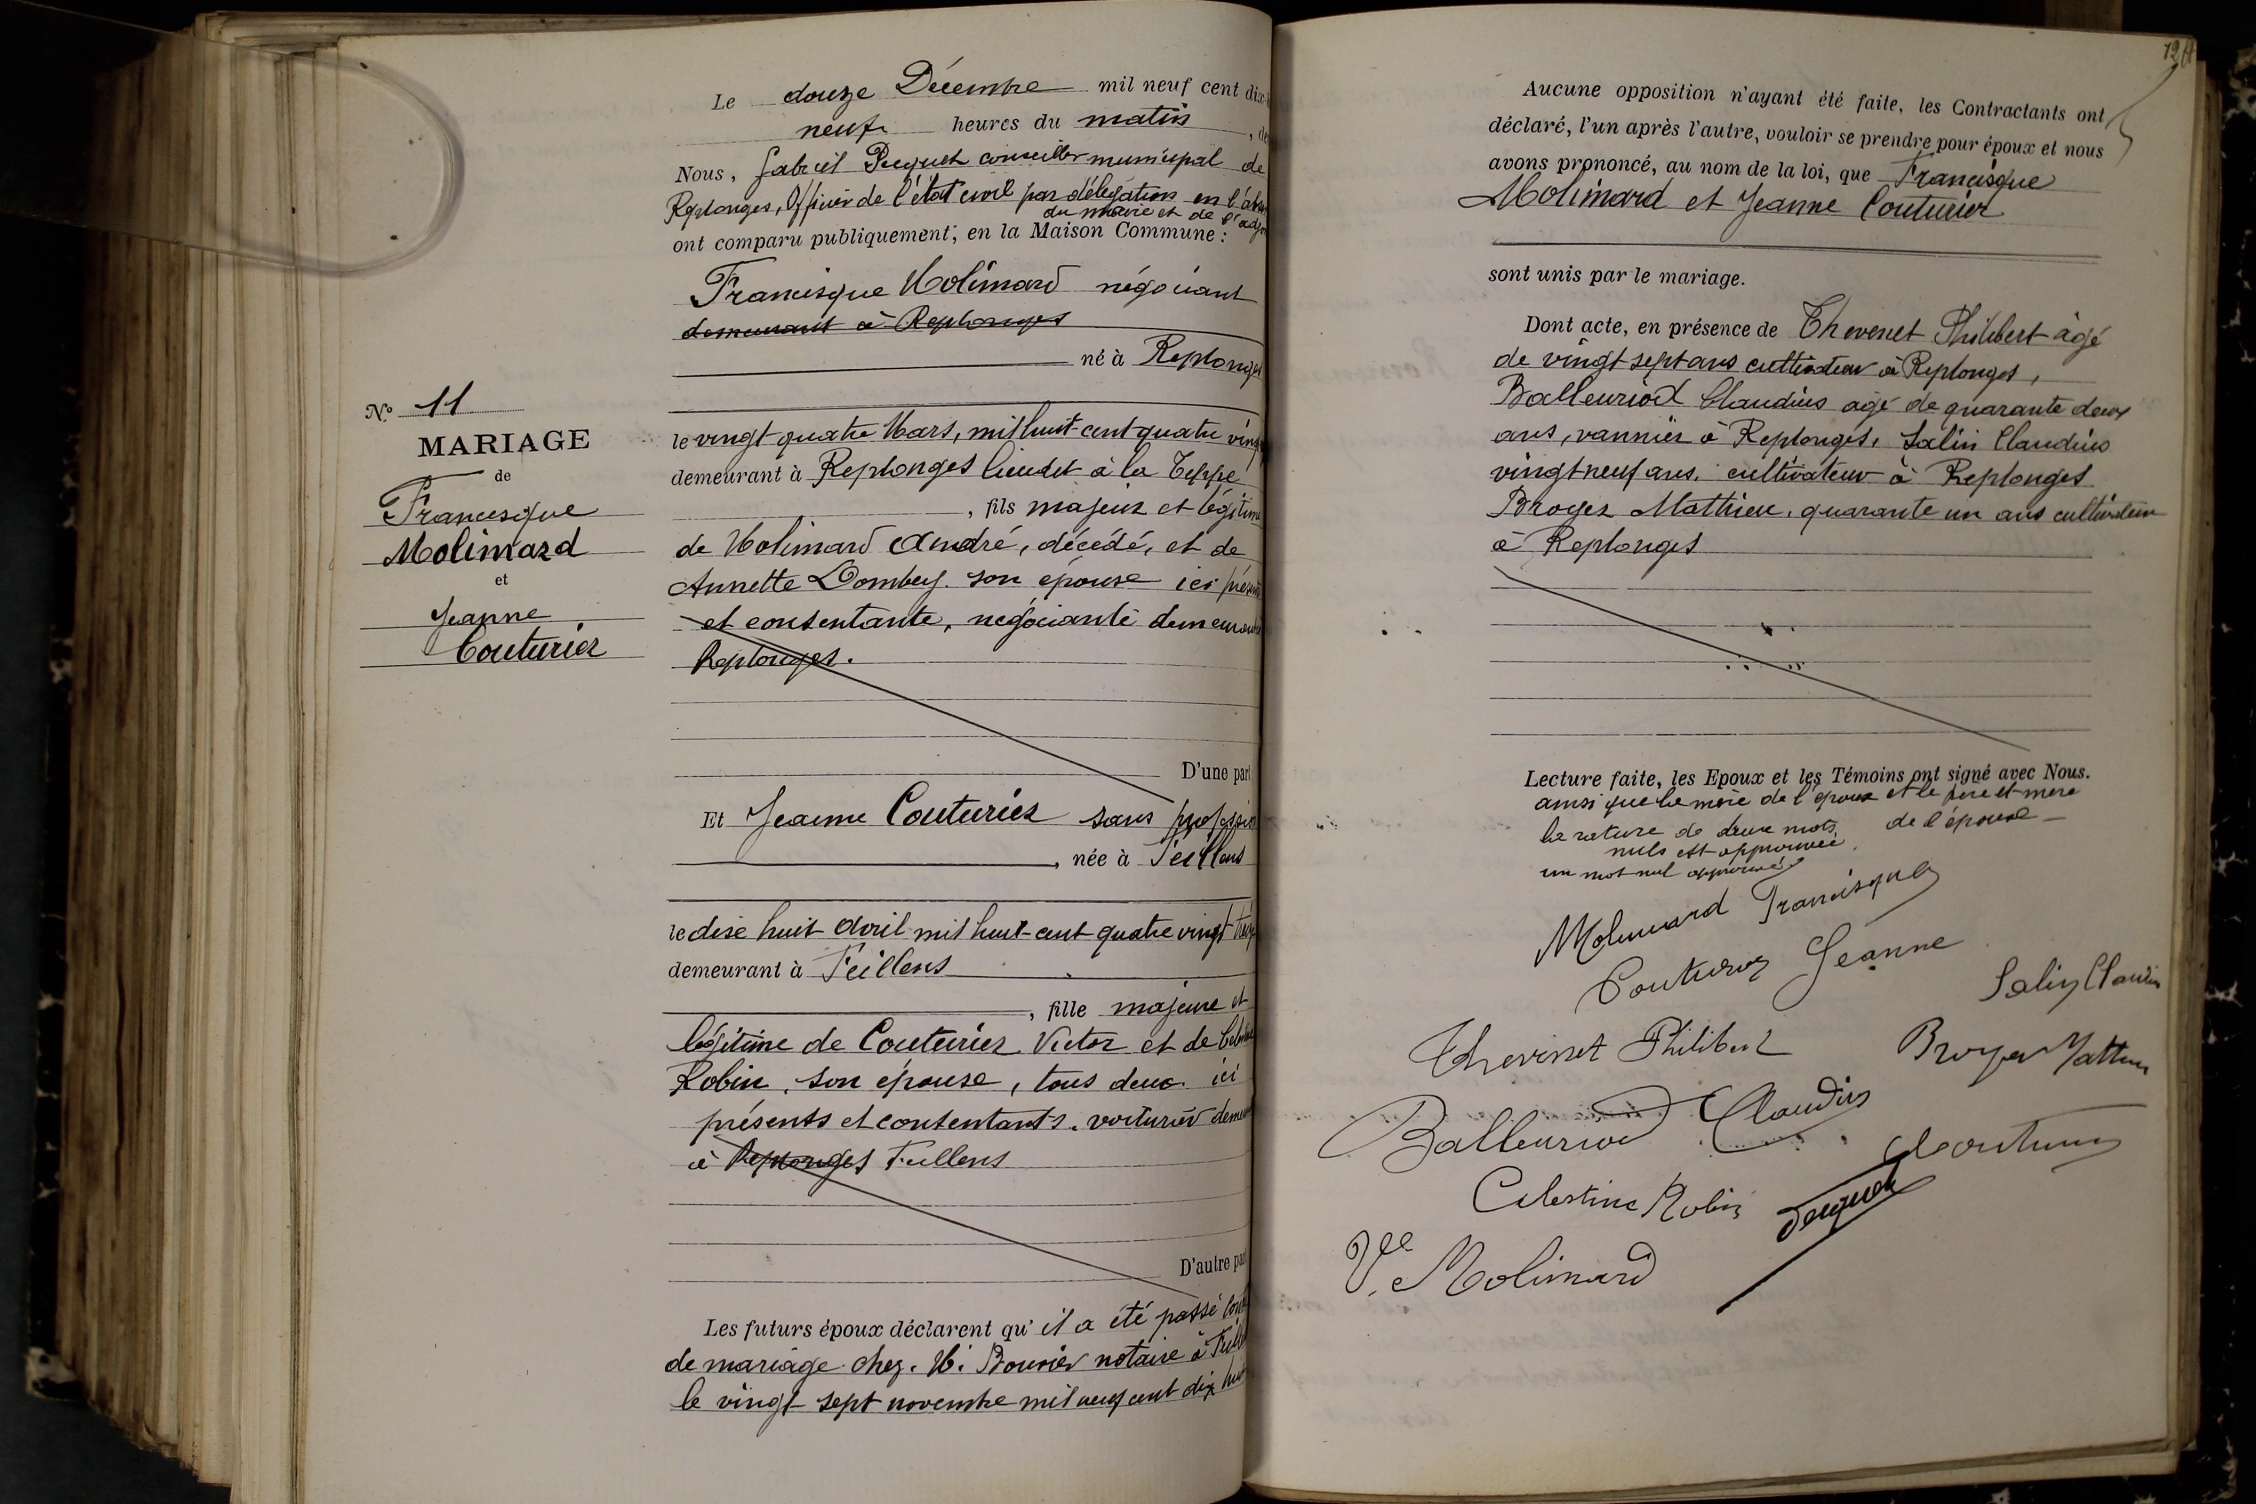 Le douze Décembre mil neuf cent dix
neuf heures du matin, de
Nous, Gabriel conseiller municipal de
Replonges, Officier de l'état civil par délégation en l'abs
du maire et de l'adj
ont comparu publiquement, en la Maison Commune :
Francisque Molimard négociant
demeurant à Replonges
né à Replonges
le vingt quatre Mars, mil huit cent quatre vingt
demeurant à Replonges lieudit à la Teppe
, fils majeur et légitime
de Molimard André, décédé, et de
Annette Dombey son épouse ici présente
et consentante, négociante demeurant
Replonges.
D'une part
Et Jeanne Couturier sans profession
, née à Feillens
le dix huit Avril mil huit cent quatre vingt
demeurant à Feillens
, fille majeure et
légitime de Couturier Victor et de Célestine
Robin, son épouse, tous deux ici
présents et contentants. voiturier deme
à Replonges Feillens
D'autre part
Les futurs époux déclarent qu'il a été passé cont
de mariage chez M. Bouvier notaire à Feill
le vingt sept novembre mil neuf cent dix huit
N° 11
MARIAGE
de
Francisque
Molimard
et
Jeanne
Couturier
Aucune opposition n'ayant été faite, les Contractants ont
déclaré, l'un après l'autre, vouloir se prendre pour époux et nous
avons prononcé, au nom de la loi, que Francisque
Molimard et Jeanne Couturier
sont unis par le mariage.
Dont acte, en présence de Thevenet Philibert âgé
de vingt sept ans cultivateur à Replonges,
Balleuriod Claudius âgé de quarante deux
ans, vannier à Replonges, Salin Claudius
vingt neuf ans, cultivateur à Replonges
Broyer Mathieu, quarante un ans cultivateur
à Replonges
Lecture faite, les Epoux et les Témoins ont signé avec Nous.
ainsi que la mère de l'époux et le père et mère
de l'épouse
la rature de deux mots
nuls est approuvée
un mot nul approuvé
Molimard Francisque
Couturier Jeanne
Salin Claudius
Thevenet Philibert
Broyer Mathieu
Balleuriod Claudius
Couturier
Celestine Robin
Vve Molimard